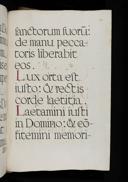 sanctorum suorũ:
de manu pecca-
toris liberabit
eos.
Lux orta est
iusto: & rectis
corde laetitia.
Laetamini iusti
in Domino: & cõ-
fitemini memori-